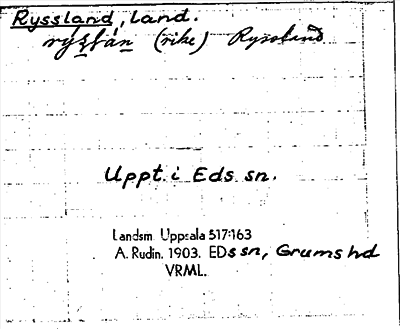 Ryssland, land.
rýs̱lán̠ (rike) Ryssland
Uppt. i Eds sn.
Landsm. Uppsala 517:163
A. Rudin. 1903. EDs sn, Grums hd
VRML.